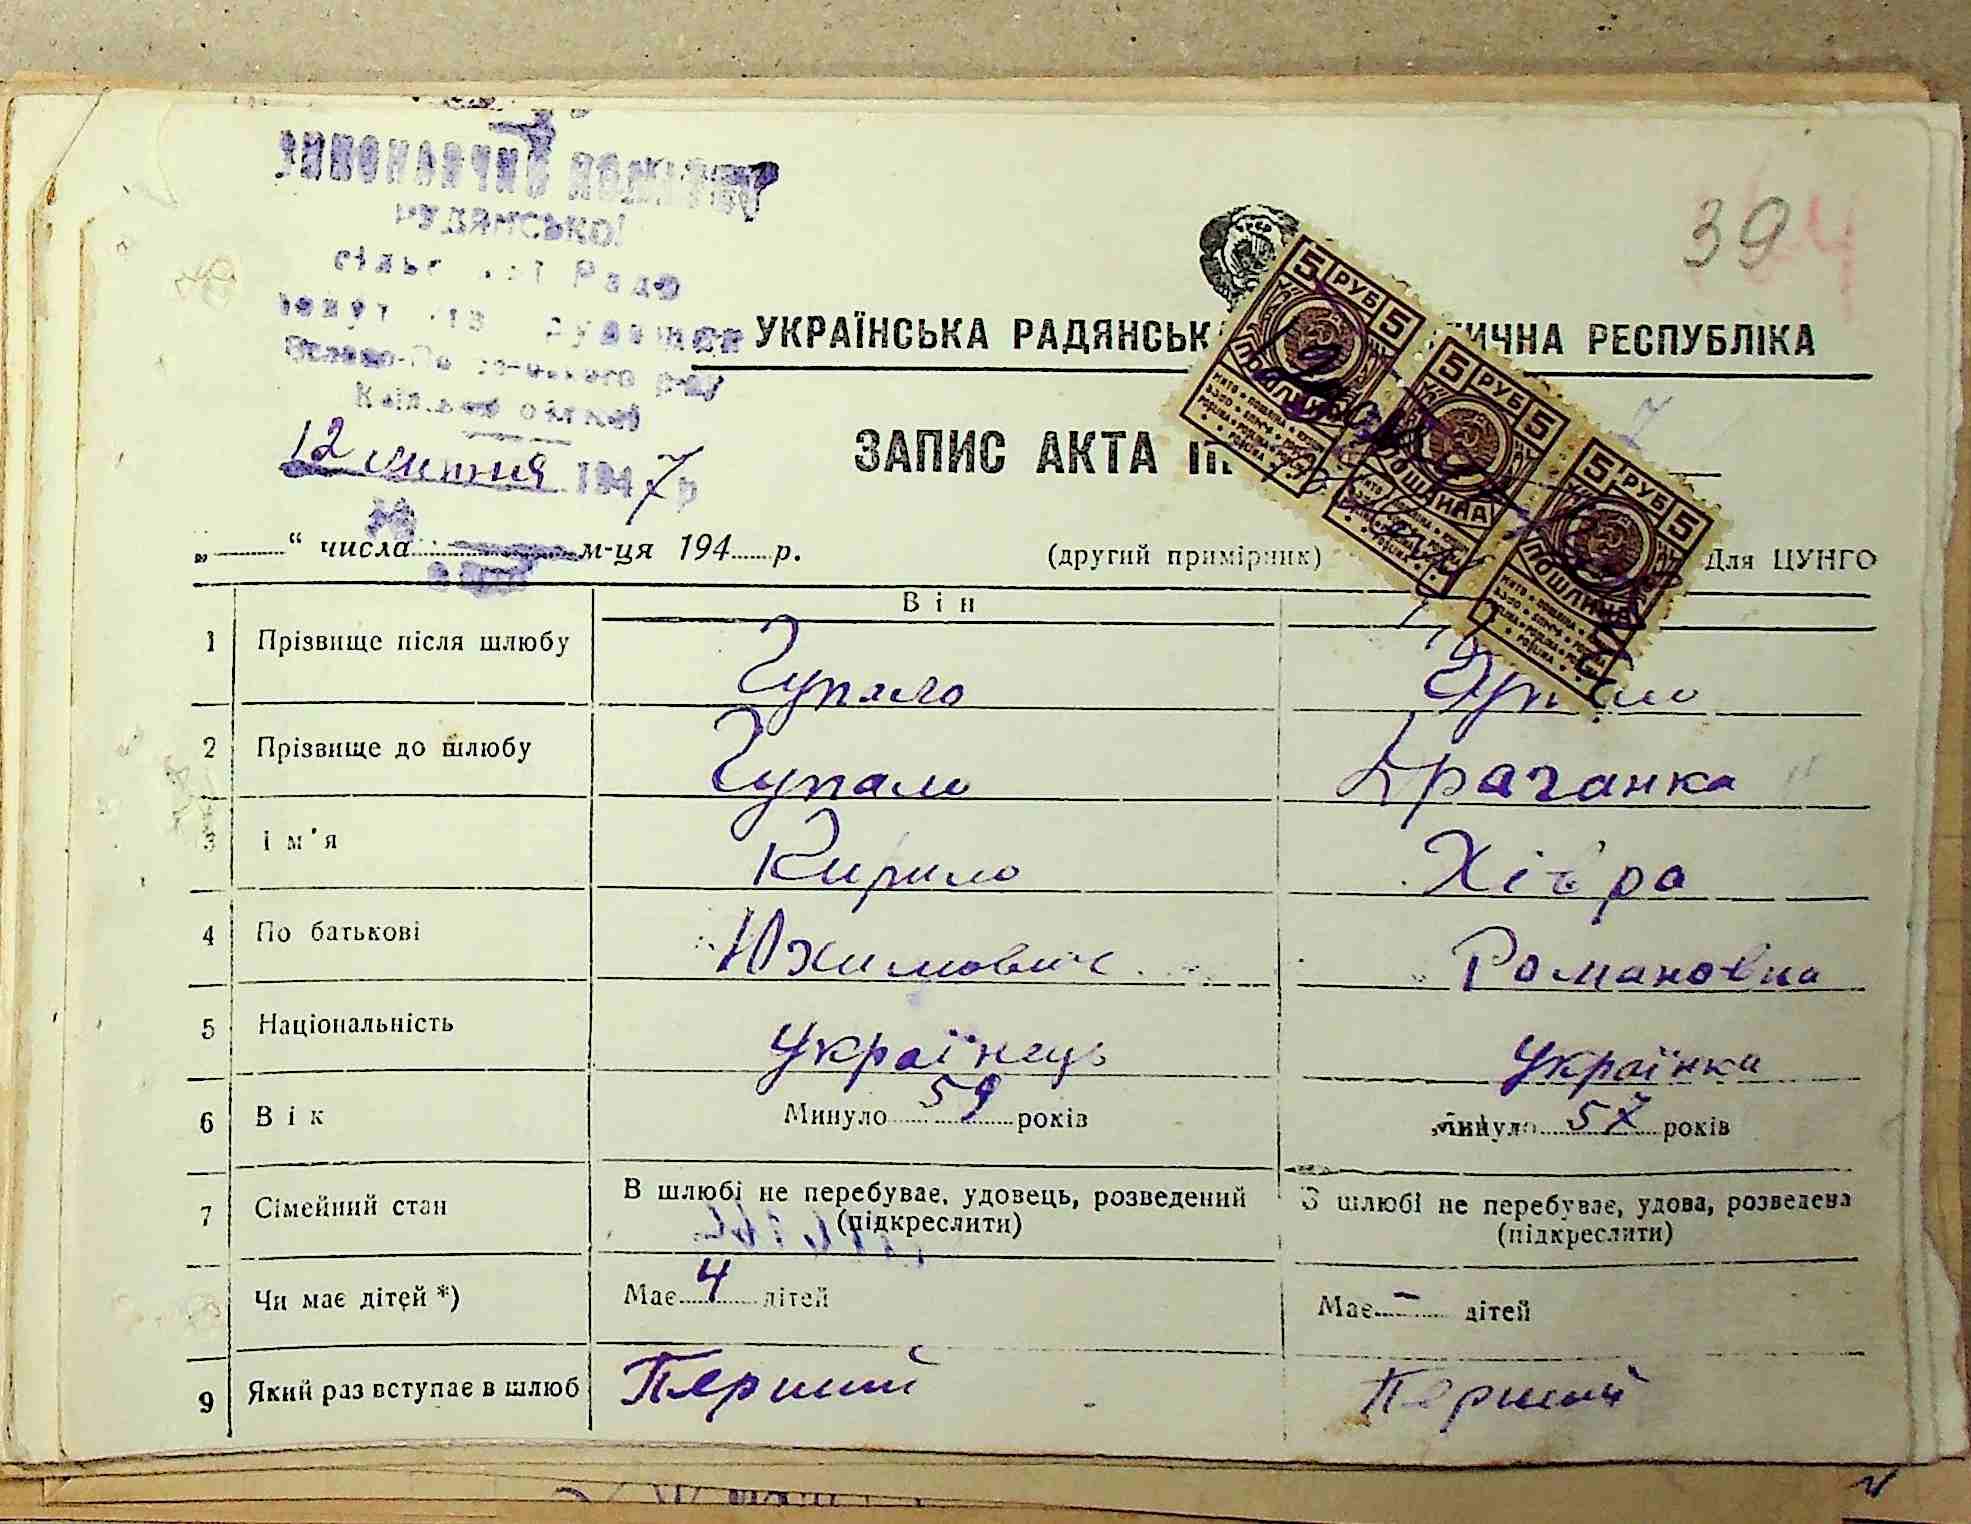 ВИКОНАВЧИЙ КОМІТЕТ
РУДЯНСЬКОЇ
Ради
р-ну
39
УКРАЇНСЬКА РАДЯНСЬК ИЧНА РЕСПУБЛІКА
5 РУБ 5
ПОШЛИНА
5 РУБ 5
ПОШЛИНА
5 РУБ 5
ПОШЛИНА
ЗАПИС АКТА П
12 лютня 1947 р
„ “ числа м-ця 194 р.
(другий примірник)
Для ЦУНГО
Він
1 Прізвище після шлюбу Гупало Гупало
2 Прізвище до шлюбу Гупало Драганка
3 Ім'я Кирило Хівра
4 По батькові Юхимович Романовна
5 Національність Українець Українка
6 Вік Минуло 59 років Минуло 57 років
7 Сімейний стан В шлюбі не перебуває, удовець, розведений (підкреслити) В шлюбі не перебуває, удова, розведена (підкреслити)
Чи має дітей *) Має 4 дітей Має - дітей
9 Який раз вступає в шлюб Перший Перший